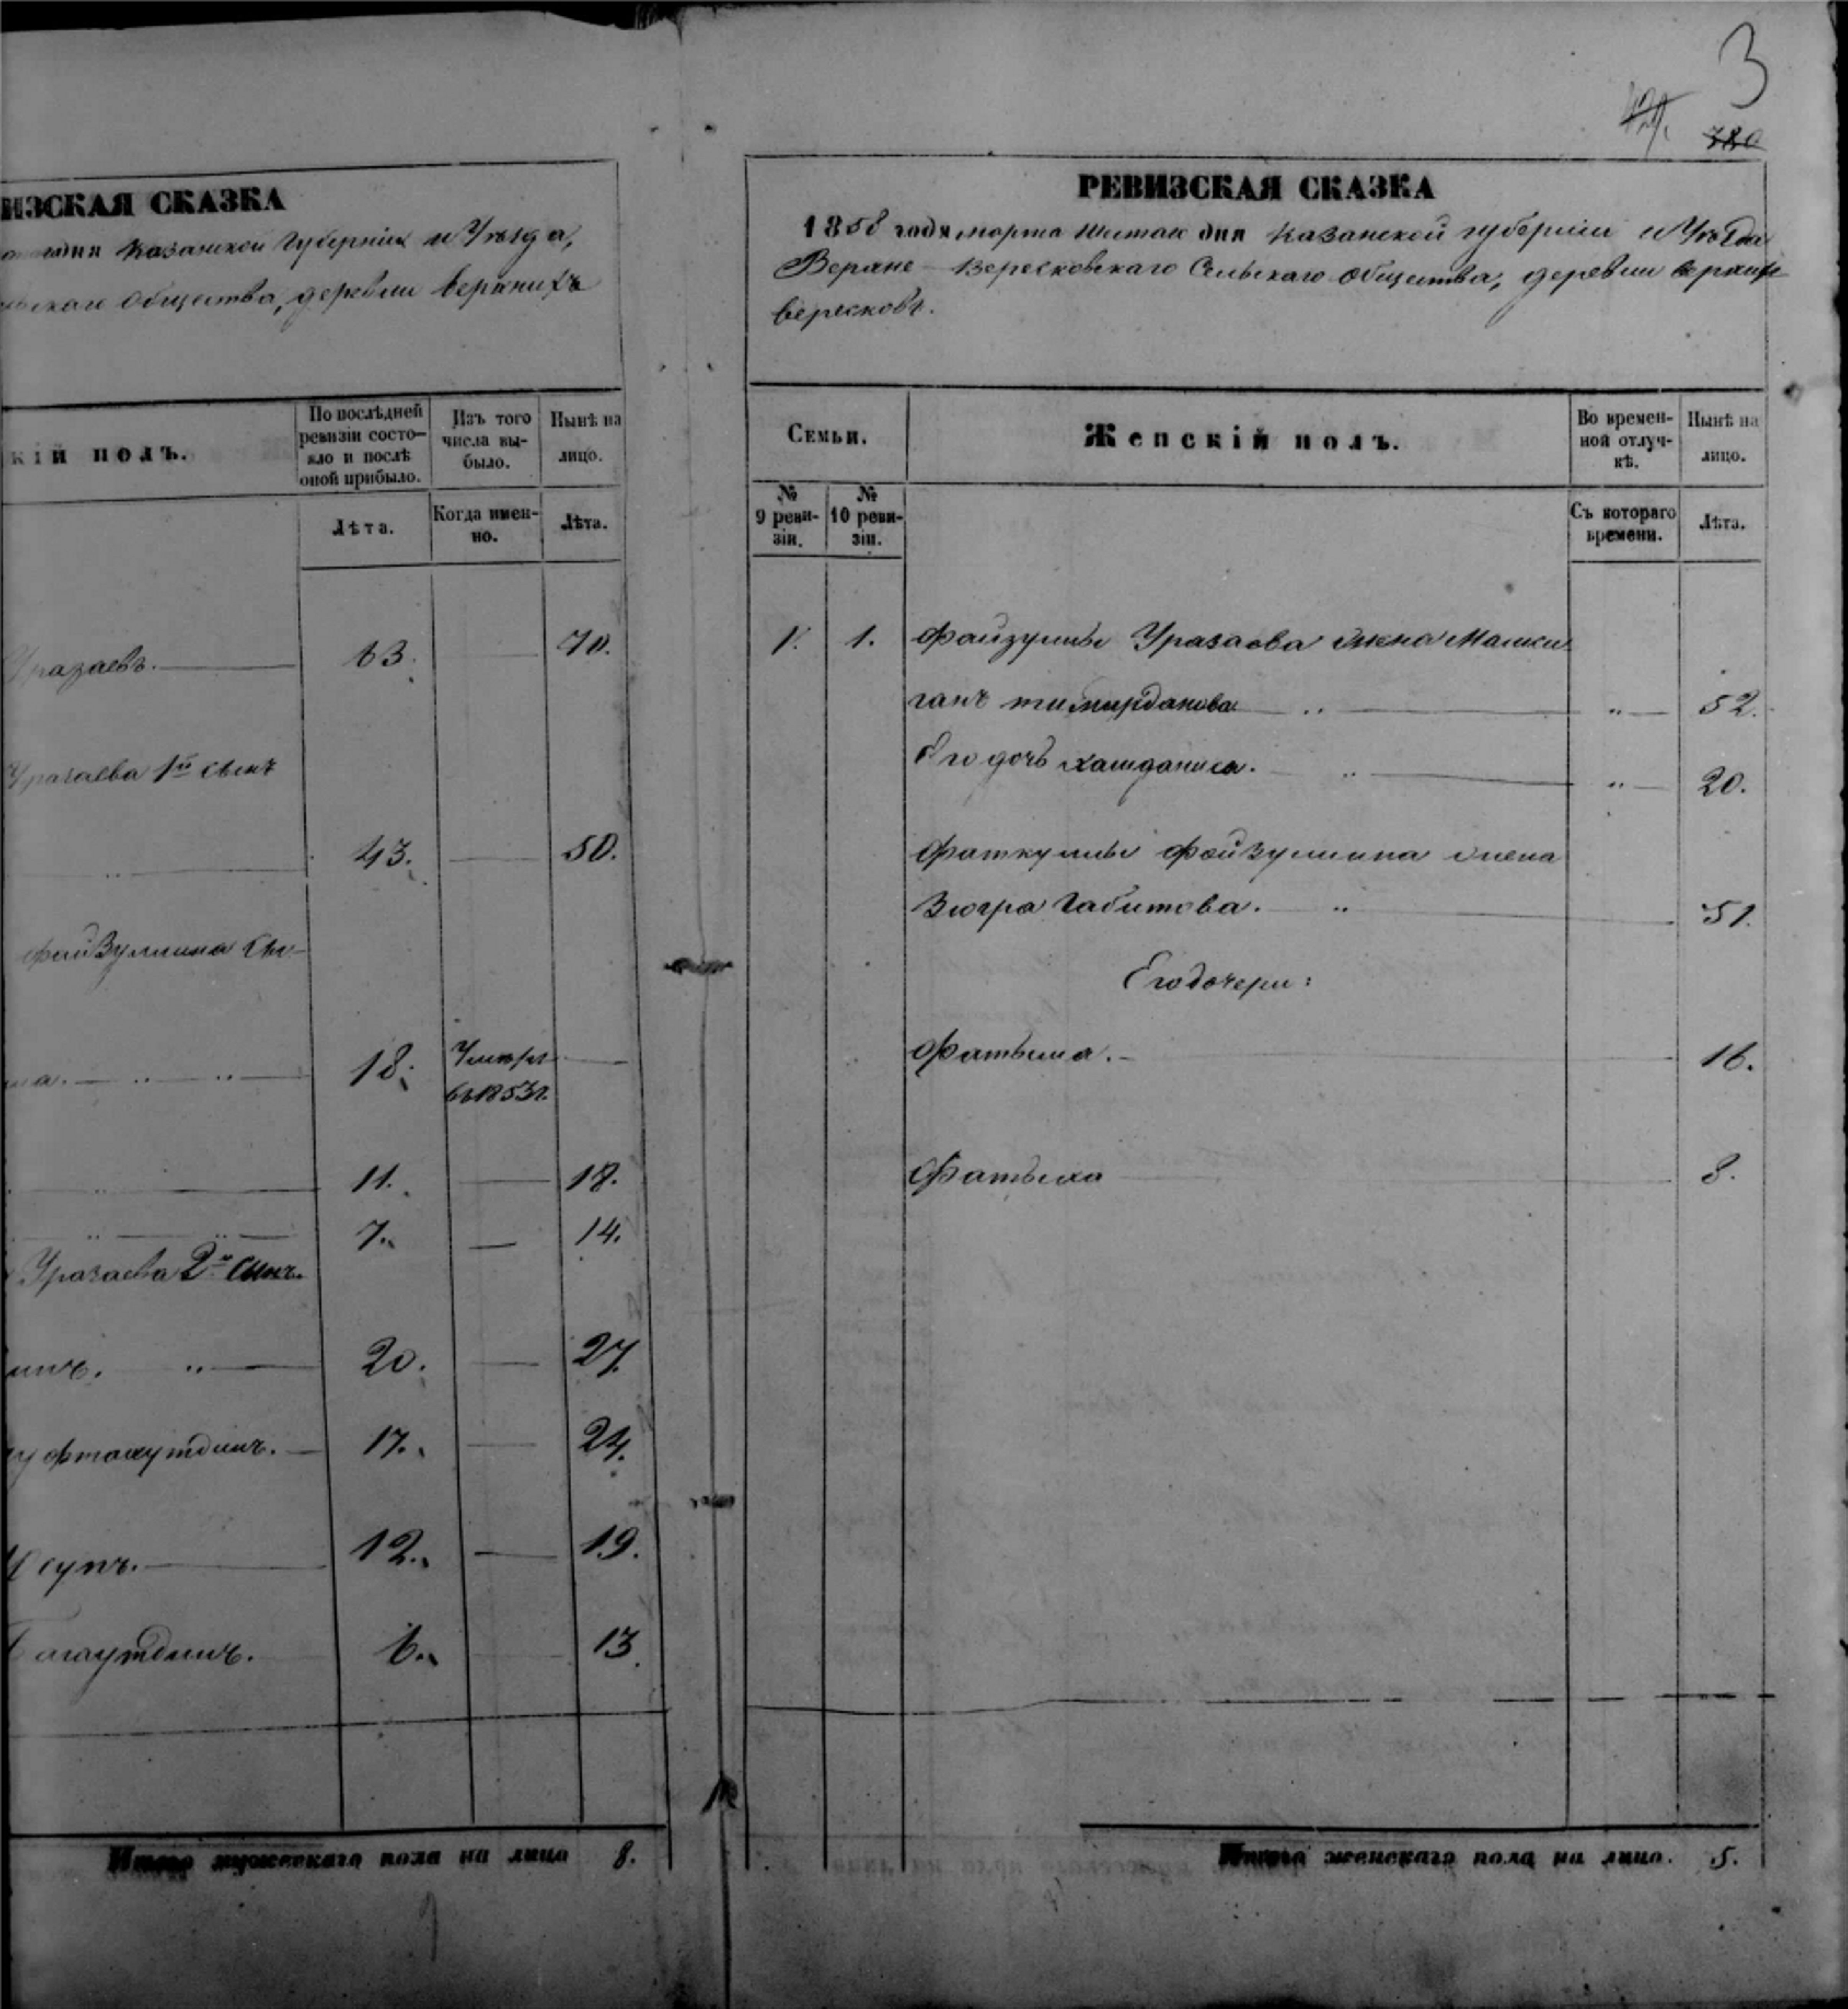 ИЗСКАЯ СКАЗКА
дня Казанской Губерніи и Уѣзда,
Общества, деревни Верхнихъ
кій полъ.
По послѣдней ревизіи состо-
яло и послѣ
оной прибыло.
Изъ того
числа вы-
было.
Нынѣ на
лицо.
Лѣта.
Когда имен-
но.
Лѣта.
Уразаевъ. 63. 70.
Уразаева 1й сынъ
43. 50.
Файзуллина
18. Умеръ
въ 1853г.
11. 18.
7. 14.
Уразаева 2й сынъ.
20. 27.
17. 24.
12. 19.
6. 13
Итого мужескаго пола на лицо 8.
3
РЕВИЗСКАЯ СКАЗКА
1858 года марта шестаго дня Казанской губерніи и Уѣзда
Верхне-Вересковскаго Сельскаго Общества, деревни Верхнихъ
Вересковъ.
Семьи.
Женскій полъ.
Во времен-
ной отлуч-
кѣ.
Нынѣ на
лицо.
№
9 реви-
зіи.
№
10 реви-
зіи.
Съ котораго
времени.
Лѣта.
1. 1. Файзуллы Уразаева жена
52.
Его дочь 20.
Фаткуллы Файзуллина жена
Зюгра Габитова. 51.
Его дочери:
Фатыма. 16.
Фатыха 8.
Итого женскаго пола на лицо. 5.